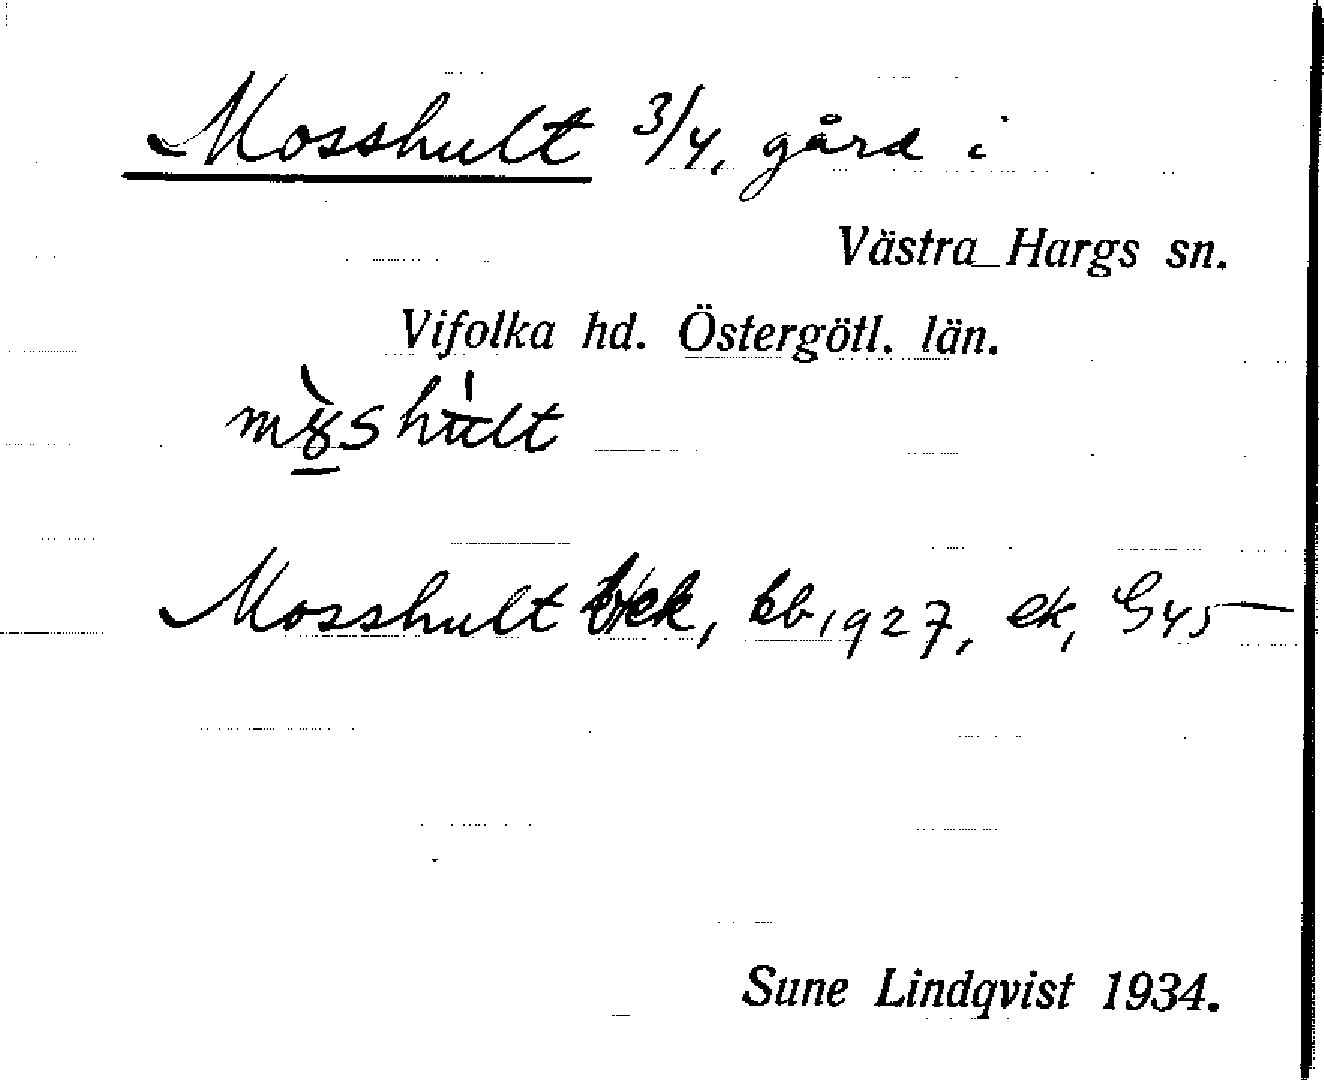 Mosshult 3/4, gård i
Västra Hargs sn.
Vifolka hd. Östergötl. län.
Mosshult jrk, kb, 1927, ek, G45
Sune Lindqvist 1934.